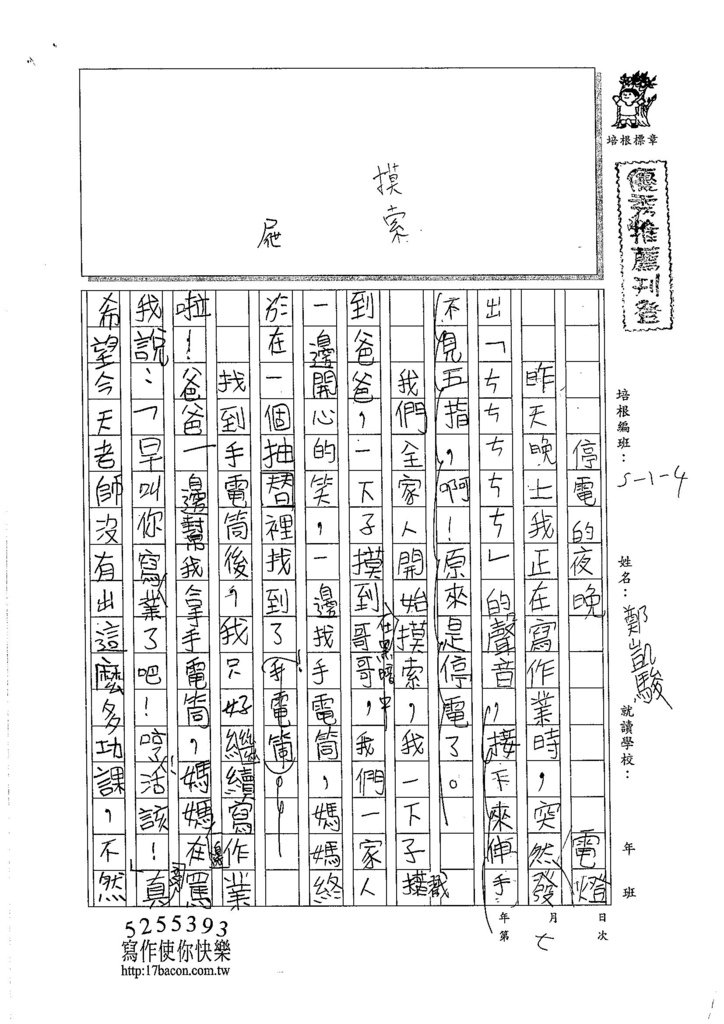 培根標章
優秀推薦刊登
培根編班：5-1-4
姓名：鄭凱駿
就讀學校：
年 班
日 次
月 七
年 第
摸索
停電的夜晚
電燈
昨天晚上我正在寫作業時，突然發
出「ㄘㄘㄘㄘ」的聲音，接下來伸手
不見五指，啊！原來是停電了。
我們全家人開始摸索，我一下子
到爸爸，一下子摸到哥哥，我們一家人
在黑暗中
一邊開心的笑，一邊找手電筒，媽媽終
於在一個抽替裡找到了手電筒！
找到手電筒後，我只好繼續寫作業
啦！爸爸一邊幫我拿手電筒，媽媽在罵
邊
我說：「早叫你寫業了吧！哼！活該！」真
希望今天老師沒有出這麼多功課，不然
5255393
寫作使你快樂
http:17bacon.com.tw